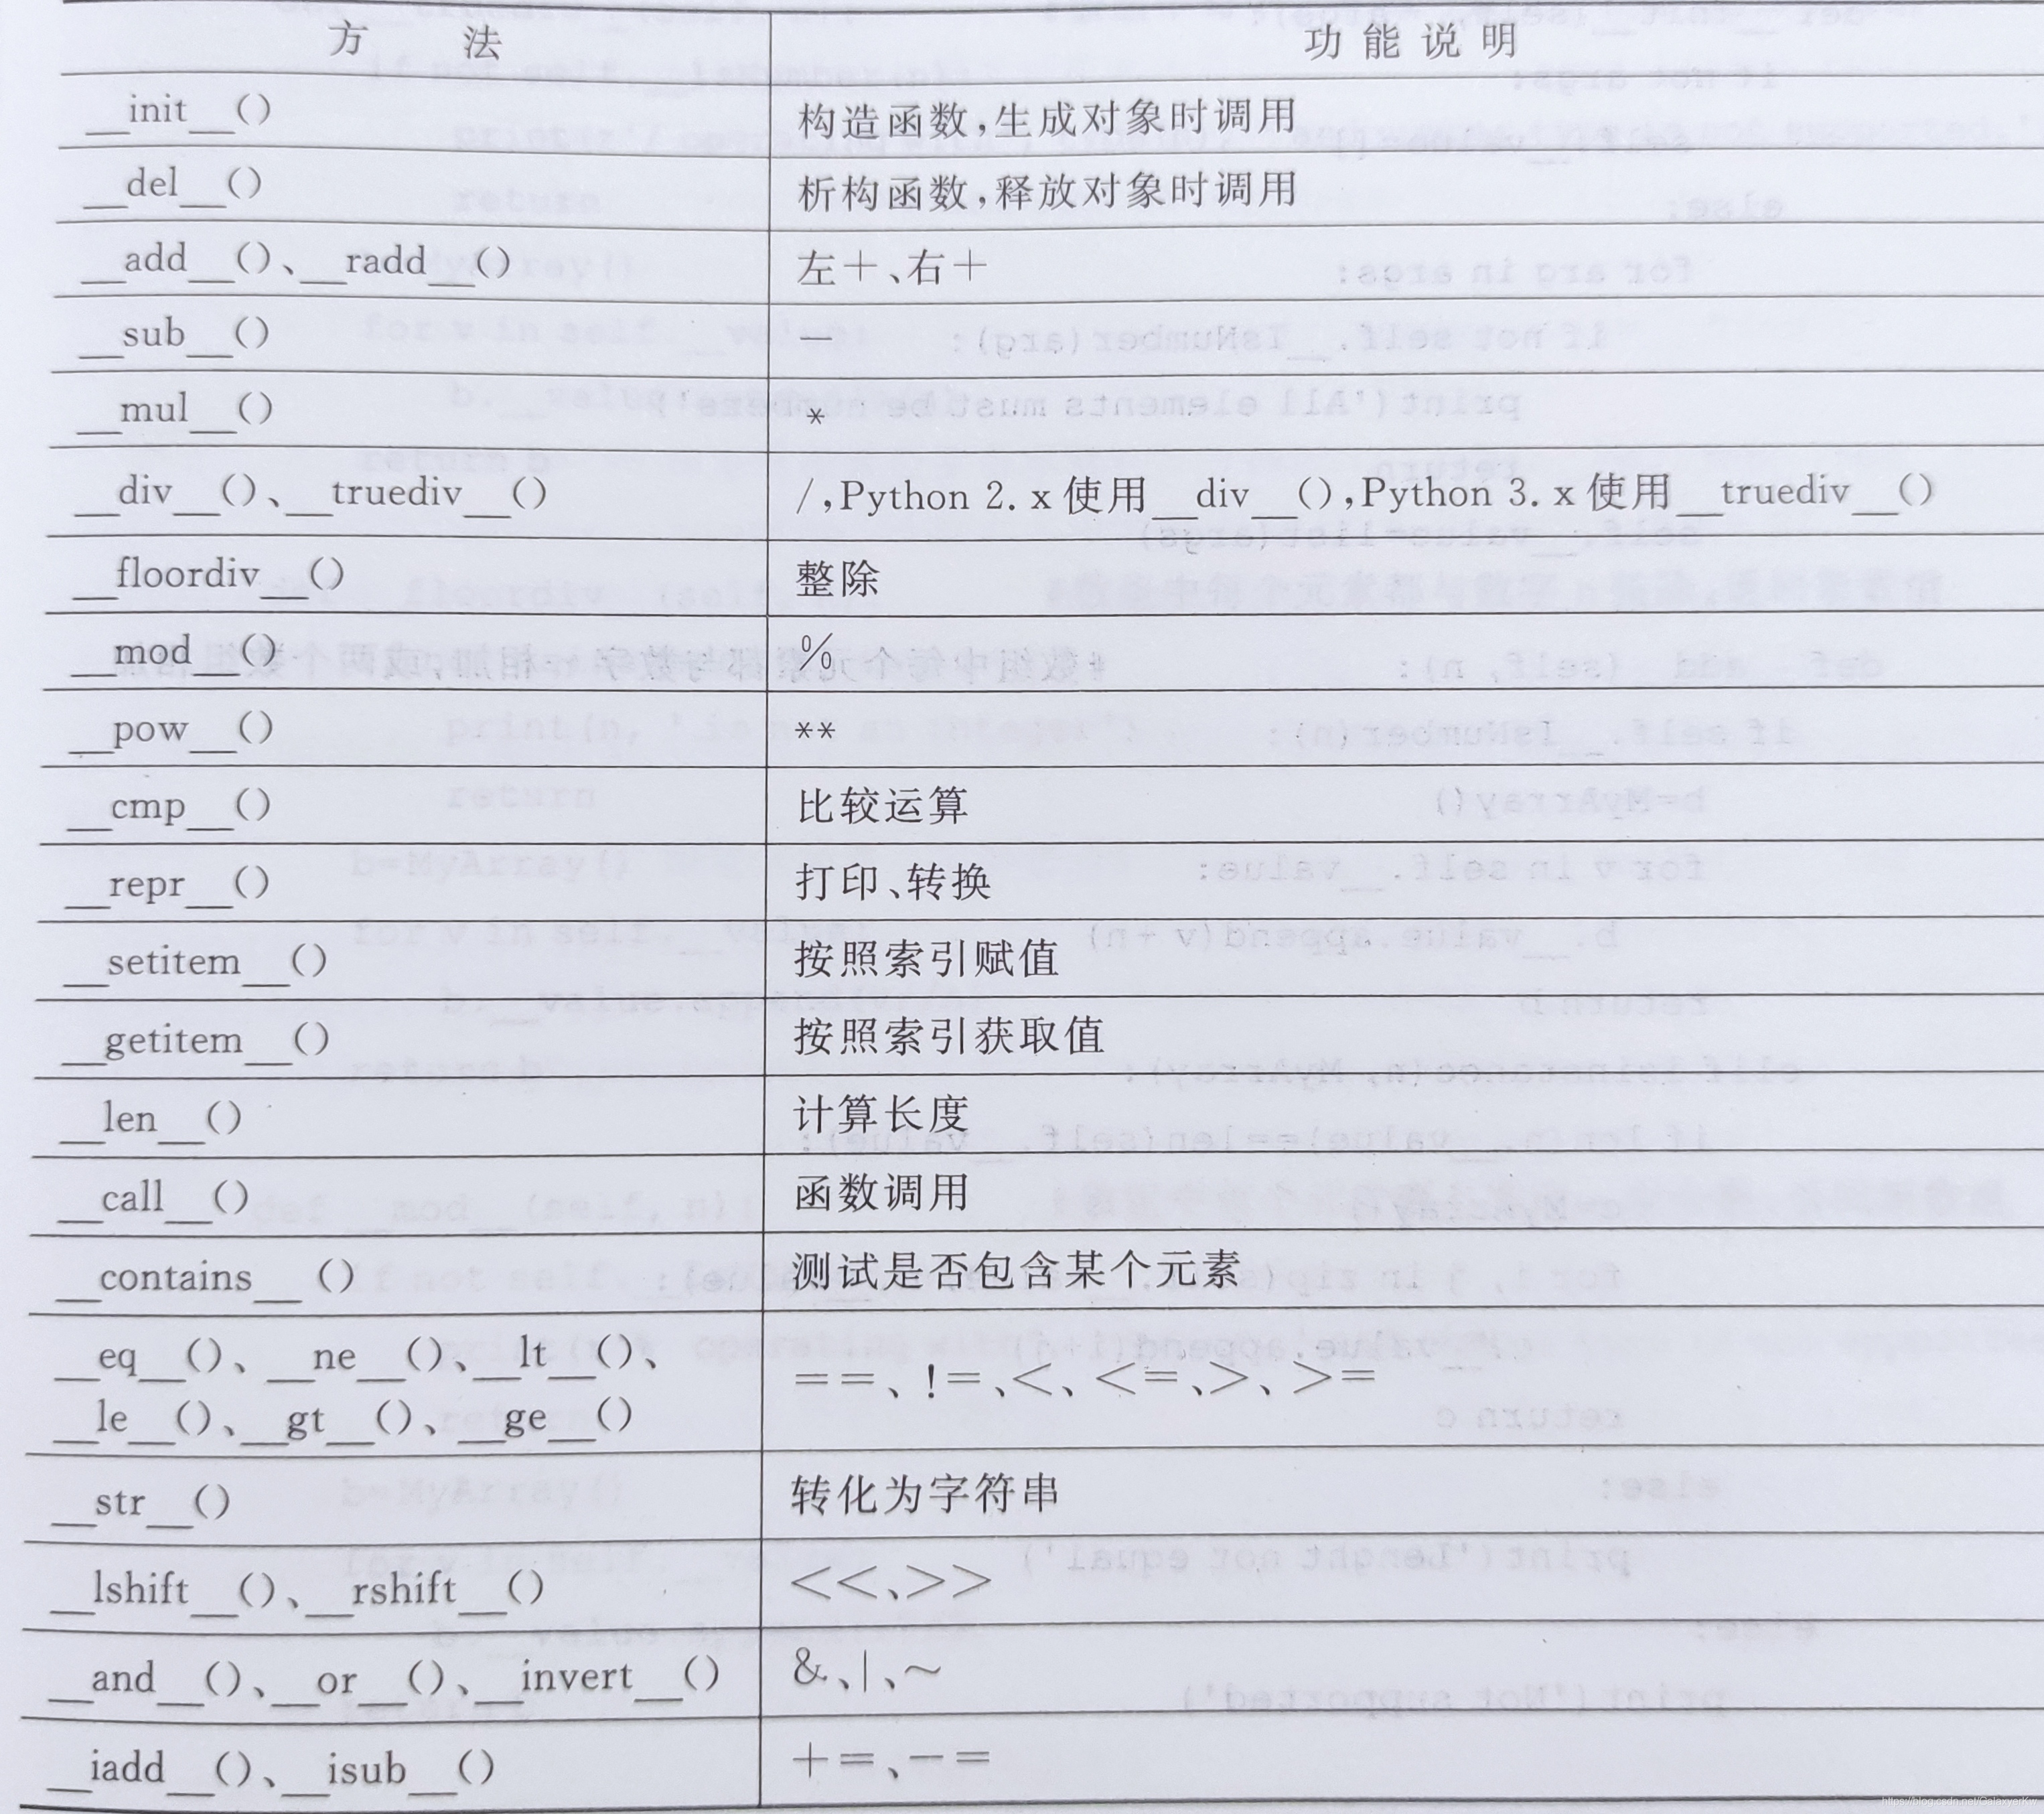 方 法 功能说明
__init__() 构造函数,生成对象时调用
__del__() 析构函数,释放对象时调用
__add__()、__radd__() 左+、右+
__sub__() —
__mul__() *
__div__()、__truediv__() /,Python 2.x使用__div__(),Python 3.x使用__truediv__()
__floordiv__() 整除
__mod__() %
__pow__() **
__cmp__() 比较运算
__repr__() 打印、转换
__setitem__() 按照索引赋值
__getitem__() 按照索引获取值
__len__() 计算长度
__call__() 函数调用
__contains__() 测试是否包含某个元素
__eq__()、__ne__()、__lt__()、
__le__()、__gt__()、__ge__() ==、!=、<、<=、>、>=
__str__() 转化为字符串
__lshift__()、__rshift__() <<、>>
__and__()、__or__()、__invert__() &、|、~
__iadd__()、__isub__() +=、-=